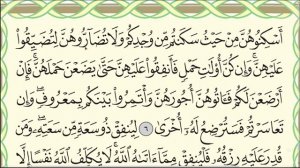 أَسْكِنُوهُنَّ مِنْ حَيْثُ سَكَنتُم مِّن وُجْدِكُمْ وَلَا تُضَآرُّوهُنَّ لِتُضَيِّقُوا۟
عَلَيْهِنَّ ۚ وَإِن كُنَّ أُو۟لَٰتِ حَمْلٍ فَأَنفِقُوا۟ عَلَيْهِنَّ حَتَّىٰ يَضَعْنَ حَمْلَهُنَّ ۚ فَإِنْ
أَرْضَعْنَ لَكُمْ فَـَٔاتُوهُنَّ أُجُورَهُنَّ ۖ وَأْتَمِرُوا۟ بَيْنَكُم بِمَعْرُوفٍ ۖ وَإِن
تَعَاسَرْتُمْ فَسَتُرْضِعُ لَهُۥٓ أُخْرَىٰ ٦ لِيُنفِقْ ذُو سَعَةٍ مِّن سَعَتِهِۦ ۖ وَمَن
قُدِرَ عَلَيْهِ رِزْقُهُۥ فَلْيُنفِقْ مِمَّآ ءَاتَىٰهُ ٱللَّهُ ۚ لَا يُكَلِّفُ ٱللَّهُ نَفْسًا إِلَّا